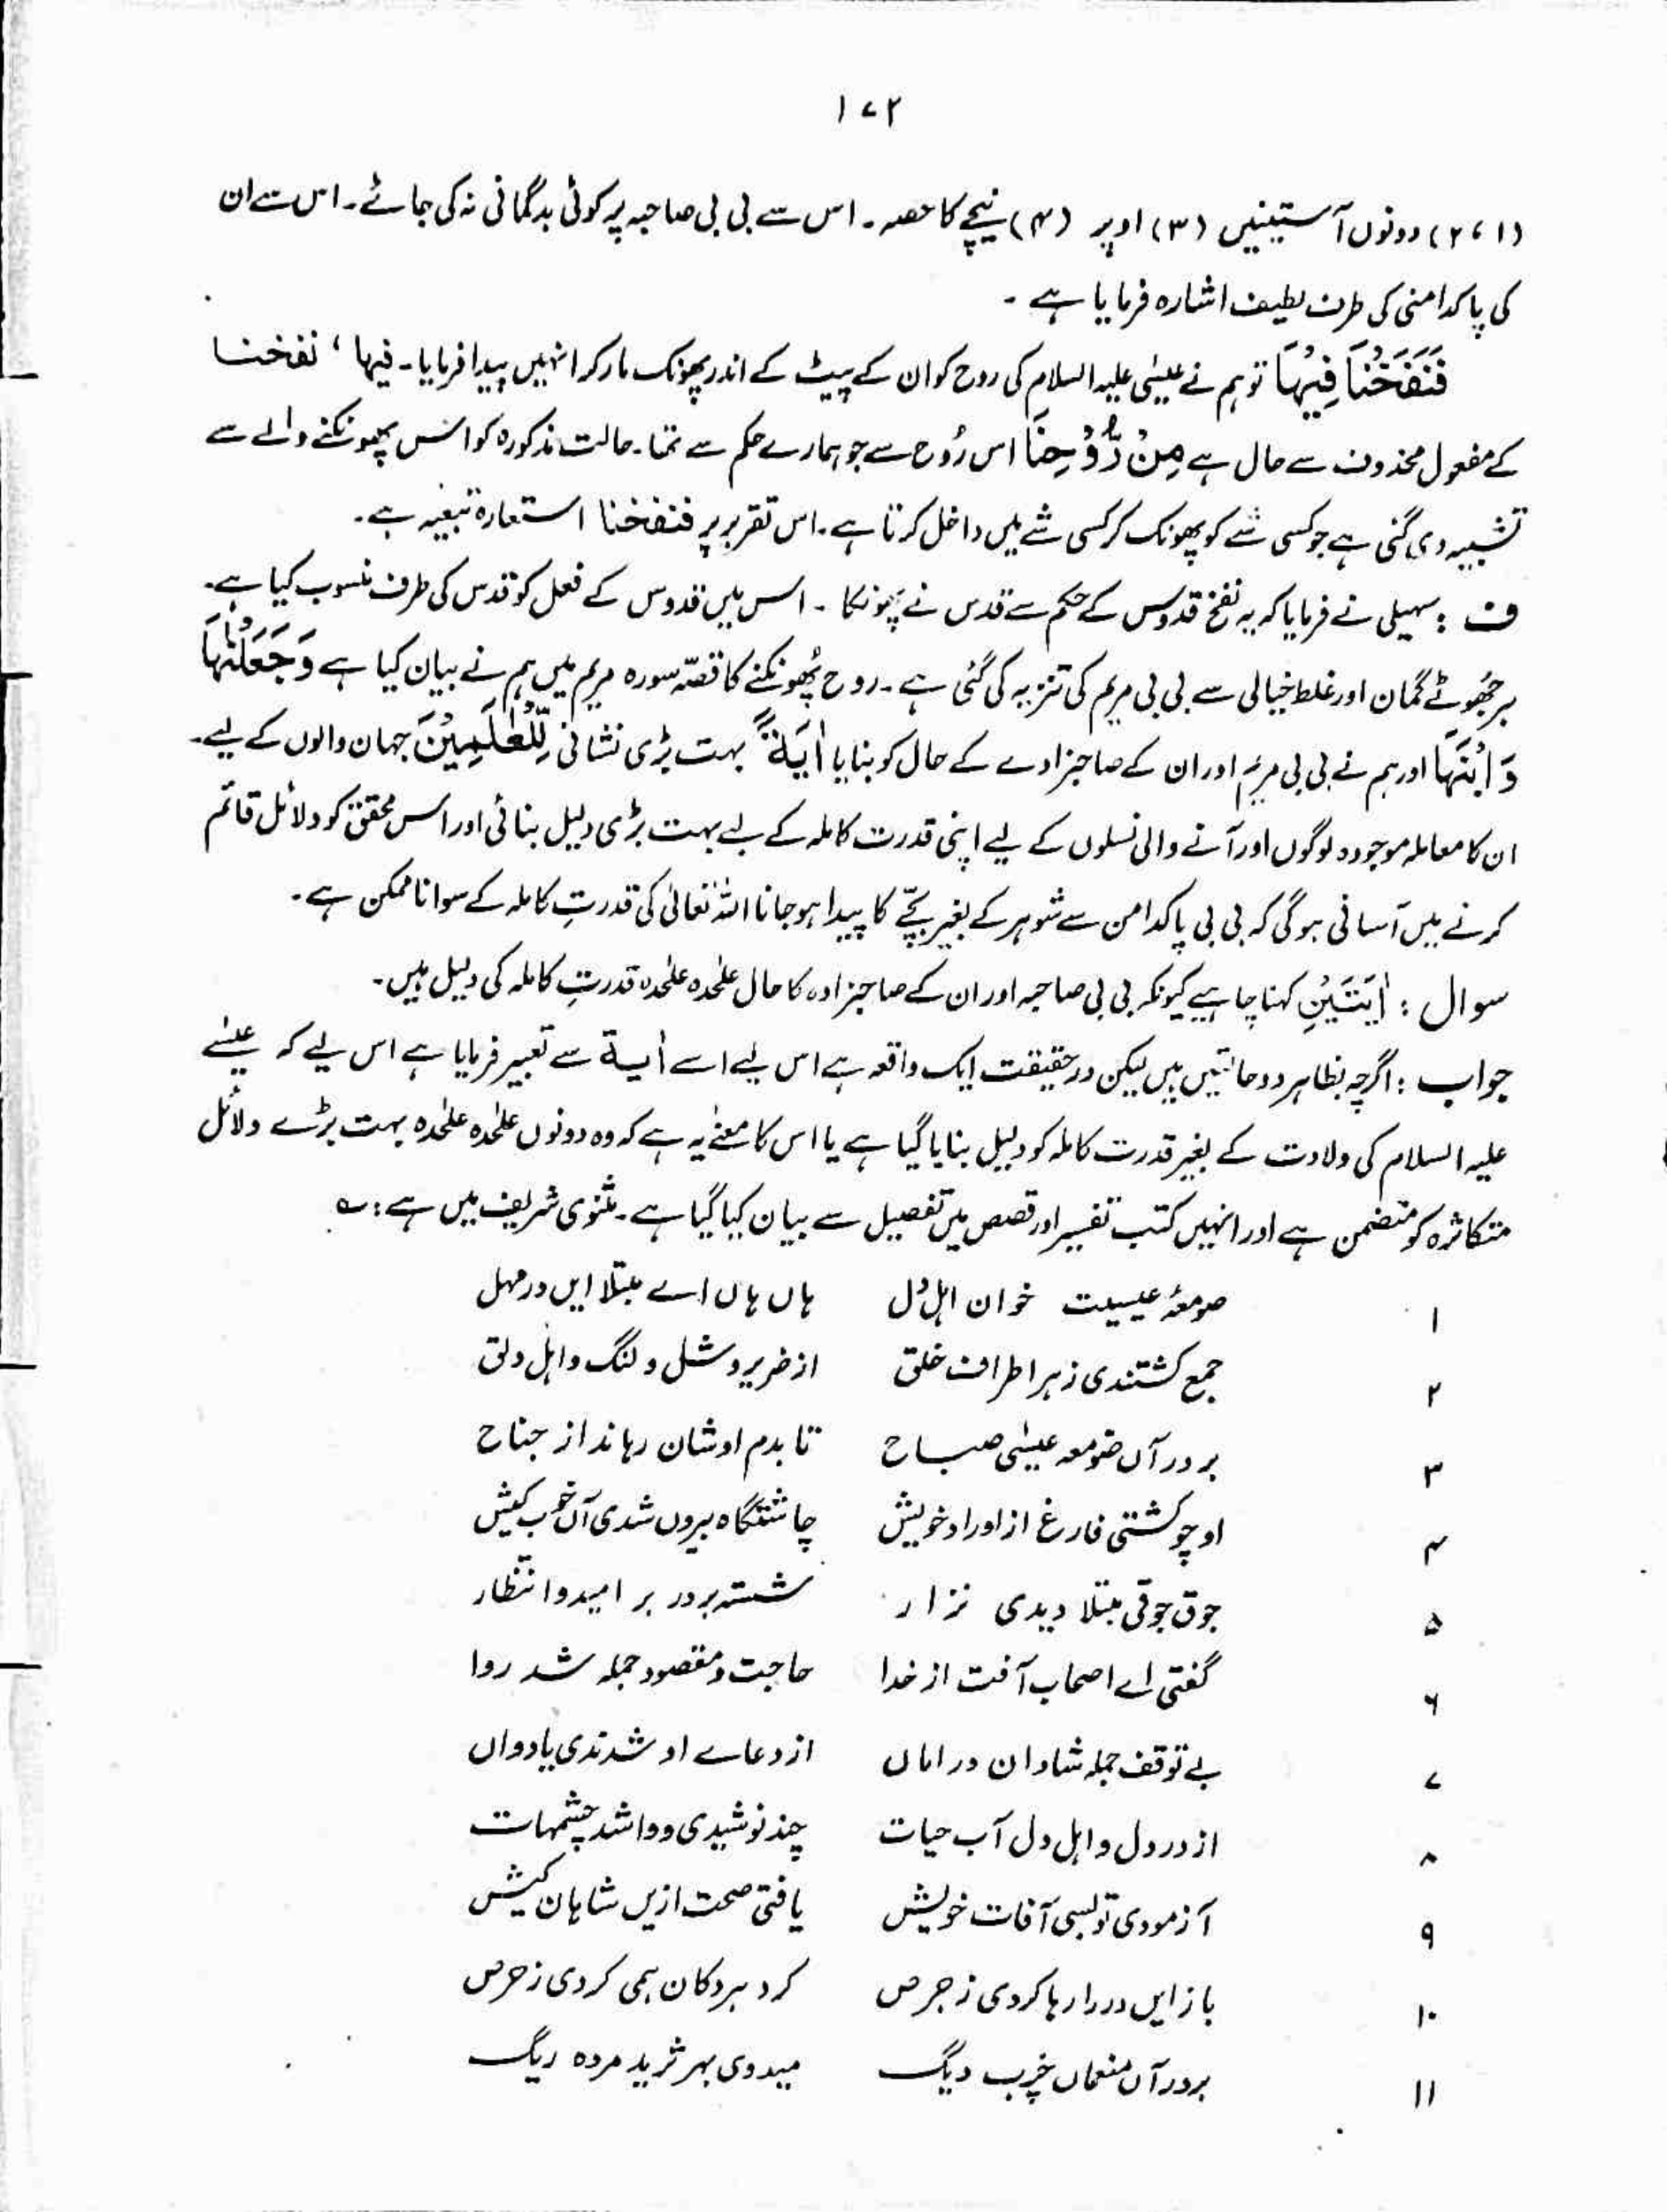 ۱۷۲
(۱ ، ۲) دونوں آستینیں (۳) اوپر (۴) نیچے کا حصہ ۔ اس سے بی بی صاحبہ پر کوئی بدگمانی نہ کی جائے ۔ اس سے ان
کی پاکدامنی کی طرف لطیف اشارہ فرمایا ہے ۔
فَنَفَخْنَا فِیْہَا تو ہم نے عیسٰی علیہ السلام کی روح کو ان کے پیٹ کے اندر پھونک مار کر انہیں پیدا فرمایا ۔ فیہا ، نفخنا
کے مفعول محذوف سے حال ہے مِنْ رُّوْحِنَا اس رُوح سے جو ہمارے حکم سے تھا ۔ حالت مذکورہ کو اس پھونکنے والے سے
تشبیہ دی گئی ہے جو کسی شے کو پھونک کر کسی شے میں داخل کرتا ہے ۔ اس تقریر پر فنفخنا استعارہ تبعیہ ہے ۔
ف : سہیلی نے فرمایا کہ یہ نفخ قدوس کے حکم سے قدس نے پھونکا ۔ اس میں قدوس کے فعل کو قدس کی طرف منسوب کیا ہے ۔
ہر جھوٹے گمان اور غلط خیالی سے بی بی مریم کی تنزیہ کی گئی ہے ۔ روح پھونکنے کا قصّہ سورہ مریم میں ہم نے بیان کیا ہے وَجَعَلْنٰہَا
وَابْنَہَا اور ہم نے بی بی مریم اور ان کے صاحبزادے کے حال کو بنایا اٰیَۃً بہت بڑی نشانی لِّلْعٰلَمِیْنَ جہان والوں کے لیے ۔
ان کا معاملہ موجودہ لوگوں اور آنے والی نسلوں کے لیے اپنی قدرت کاملہ کے لیے بہت بڑی دلیل بنائی اور اس محقق کو دلائل قائم
کرنے میں آسانی ہوگی کہ بی بی پاکدامن سے شوہر کے بغیر بچّے کا پیدا ہو جانا اللہ تعالٰی کی قدرتِ کاملہ کے سوا ناممکن ہے ۔
سوال : اٰیَتَیْنِ کہنا چاہیے کیونکہ بی بی صاحبہ اور ان کے صاحبزادہ کا حال علٰحدہ علٰحدہ قدرتِ کاملہ کی دلیل ہیں ۔
جواب : اگرچہ بظاہر دو حالتیں ہیں لیکن درحقیقت ایک واقعہ ہے اس لیے اسے اٰیۃ سے تعبیر فرمایا ہے اس لیے کہ عیسٰے
علیہ السلام کی ولادت کے بغیر قدرت کاملہ کو دلیل بنایا گیا ہے یا اس کا معنے یہ ہے کہ وہ دونوں علٰحدہ علٰحدہ بہت بڑے دلائل
متکاثرہ کو متضمن ہے اور انہیں کتب تفسیر اور قصص میں تفصیل سے بیان کیا گیا ہے ۔ مثنوی شریف میں ہے : ؎
۱ صومعۂ عیسیت خوان اہل دل ہاں ہاں اے مبتلا ایں در مہل
۲ جمع گشتندی زہر اطراف خلق از ضریر و شل و لنگ و اہل دلق
۳ بر در آں صومعہ عیسٰی صباح تا بدم اوشان رہاند از جناح
۴ او چو گشتی فارغ از اوراد خویش چاشتگاہ بیروں شدی آں خوب کیش
۵ جوق جوقی مبتلا دیدی نزار شستہ بر در بر امید و انتظار
۶ گفتی اے اصحاب آفت از خدا حاجت و مقصود جملہ شد روا
۷ بے توقف جملہ شادان در اماں از دعاے او شدندی پا دواں
۸ از در دل و اہل دل آب حیات چند نوشیدی و وا شد چشمہات
۹ آزمودی تو بسی آفات خویش یافتی صحت ازیں شاہان کیش
۱۰ باز ایں در را رہا کردی ز حرص گرد ہر دکان ہمی گردی ز حرص
۱۱ بر در آں منعمان چرب دیگ میدوی بہر ثرید مردہ ریگ